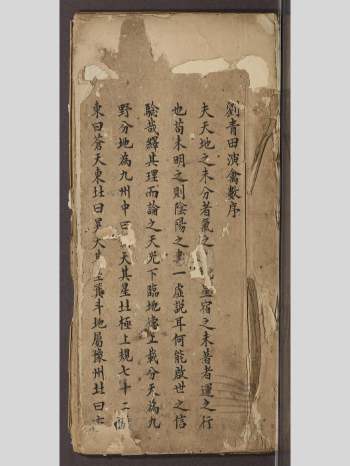 劉青田演禽數序
夫天地之未分著氣之宿之未著者運之行
也苟未明之則陰陽之一虛說耳何能啟世之信
驗哉繹其理而論之天光下臨地德上載分天為九
野分地為九州中曰天其星北極上規七斗二
東曰蒼天東北曰昊天其斗地屬豫州北曰